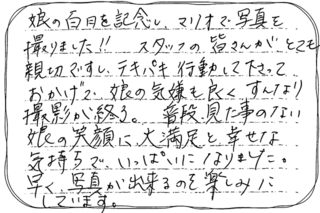 娘の百日を記念し、マリオで写真を
撮りました!! スタッフの皆さんがとても
親切ですし、テキパキ行動して下さって
おかげで、娘の気嫌も良くすんなり
撮影が終る。 普段見た事のない
娘の笑顔に大満足と幸せな
気持ちで、いっぱいになりました。
早く、写真が出来るのを楽しみに
しています。